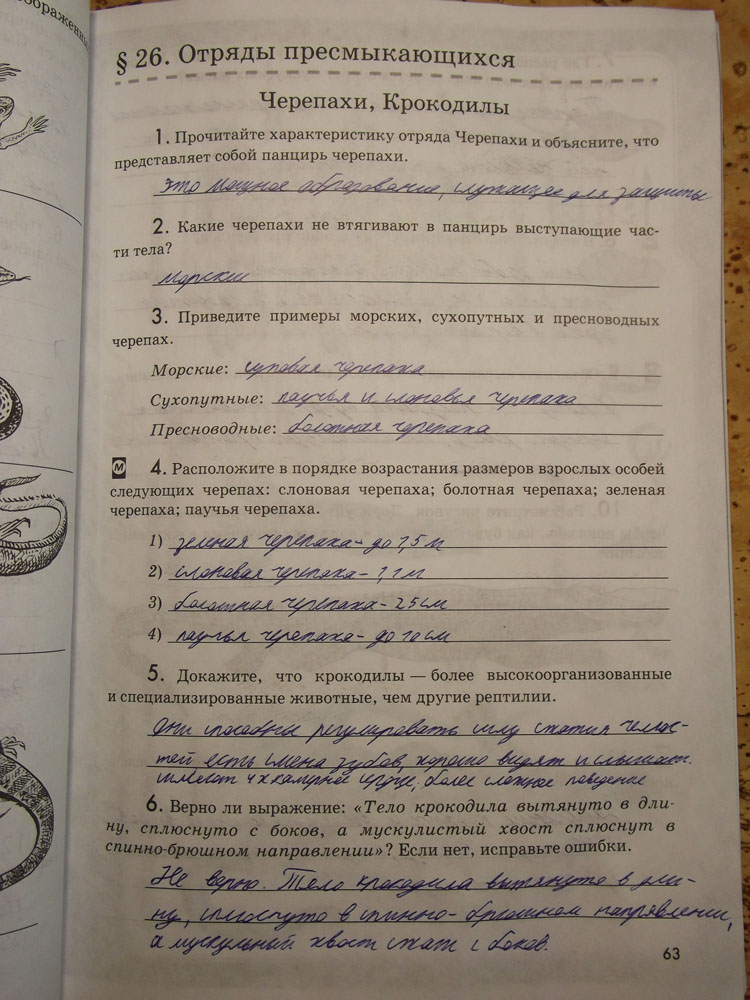 ображенны
§ 26. Отряды пресмыкающихся
Черепахи, Крокодилы
1. Прочитайте характеристику отряда Черепахи и объясните, что
представляет собой панцирь черепахи.
это мощное образование, служащее для защиты
2. Какие черепахи не втягивают в панцирь выступающие час-
ти тела?
морские
3. Приведите примеры морских, сухопутных и пресноводных
черепах.
Морские: суповая черепаха
Сухопутные: паучья и слоновья черепаха
Пресноводные: болотная черепаха
М 4. Расположите в порядке возрастания размеров взрослых особей
следующих черепах: слоновая черепаха; болотная черепаха; зеленая
черепаха; паучья черепаха.
1) зеленая черепаха - до 1,5 м
2) слоновая черепаха - 1,1 м
3) болотная черепаха - 25 см
4) паучья черепаха - до 10 см
5. Докажите, что крокодилы — более высокоорганизованные
и специализированные животные, чем другие рептилии.
Они способны регулировать силу сжатия челюс-
тей есть смена зубов, хорошо видят и слышат.
имеют 4х камерное сердце, более сложное поведение
6. Верно ли выражение: «Тело крокодила вытянуто в дли-
ну, сплюснуто с боков, а мускулистый хвост сплюснут в
спинно-брюшном направлении»? Если нет, исправьте ошибки.
Не верно. Тело крокодила вытянуто в дли-
ну, сплюснуто в спинно-брюшном направлении,
а мускульный хвост сжат с боков.
63